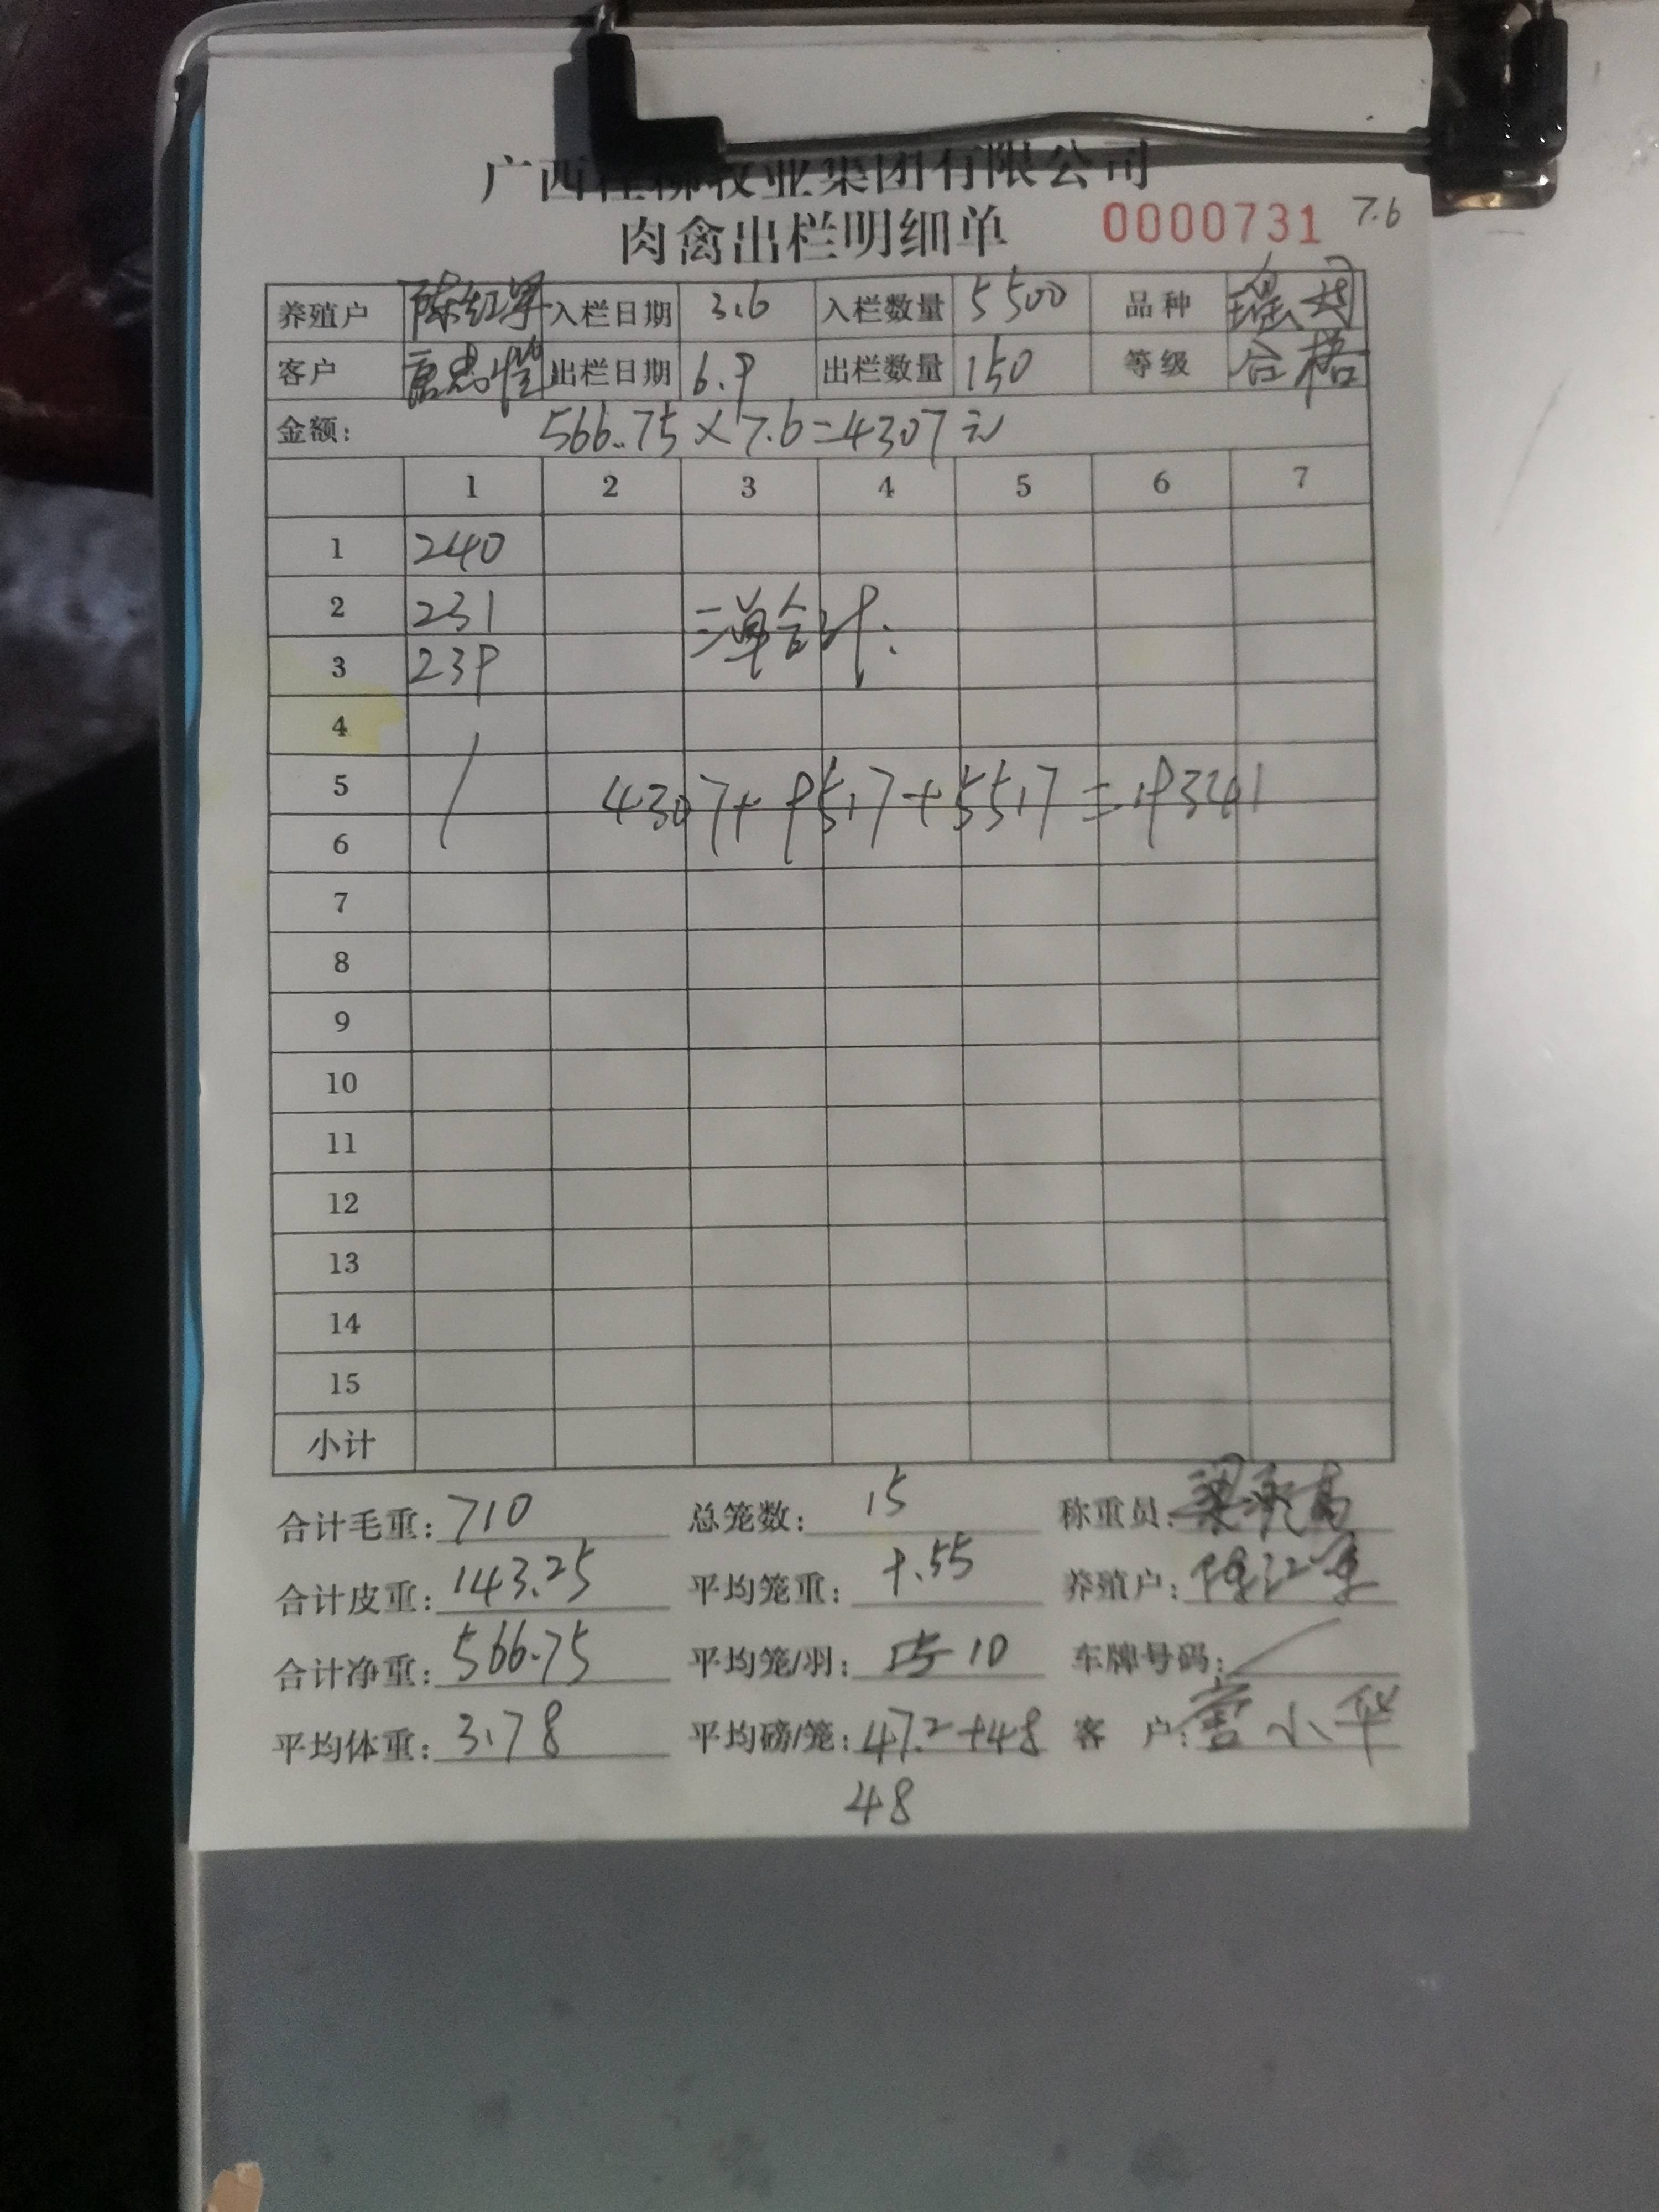 广西桂柳牧业集团有限公司
肉禽出栏明细单 0000731 7.6
养殖户 陈红军 入栏日期 3.6 入栏数量 5500 品种 瑶
客户 唐忠 出栏日期 6.9 出栏数量 150 等级 合格
金额: 566.75×7.6=4307元
1 2 3 4 5 6 7
1 240
2 231 三单合计:
3 239
4
5 4307+9517+5517=19341
6
7
8
9
10
11
12
13
14
15
小计
合计毛重: 710 总笼数: 15 称重员: 梁
合计皮重: 143.25 平均笼重: 9.55 养殖户: 陈红军
合计净重: 566.75 平均笼/羽: 15 10 车牌号码: /
平均体重: 3.78 平均磅/笼: 47.2+48 客 户: 唐小华
48